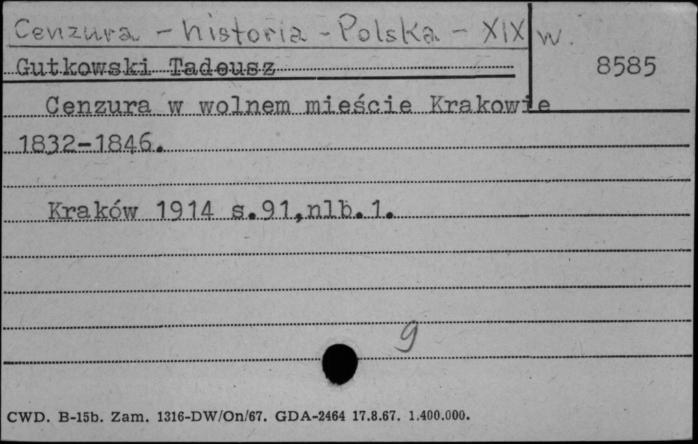 Cenzura - historia - Polska - XIX w.
8585
Gutkowski Tadeusz
Cenzura w wolnem mieście Krakowie
1832-1846.
Kraków 1914 s.91,nlb.1.
9
CWD. B-15b. Zam. 1316-DW/On/67. GDA-2464 17.8.67. 1.400.000.